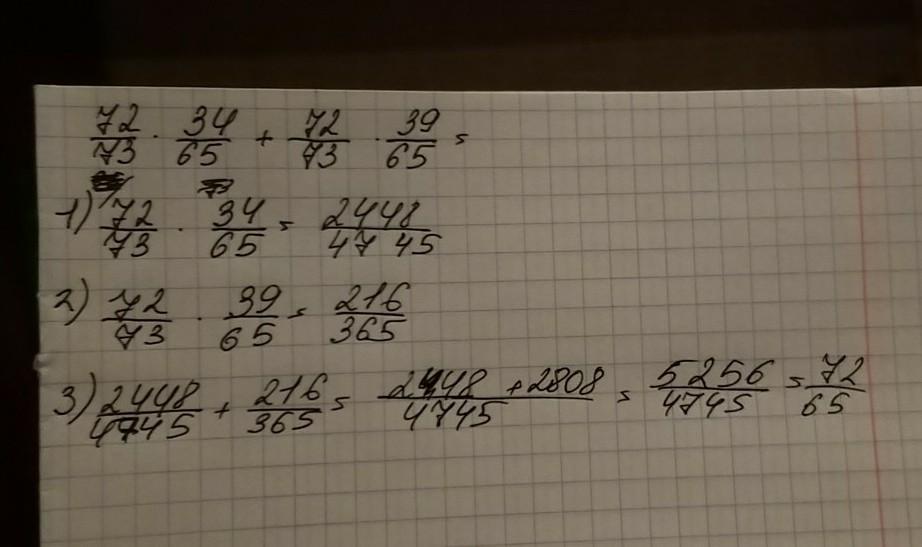 72/73 · 34/65 + 72/73 · 39/65 =
1) 72/73 · 34/65 = 2448/4745
2) 72/73 · 39/65 = 216/365
3) 2448/4745 + 216/365 = 2448+2808/4745 = 5256/4745 = 72/65